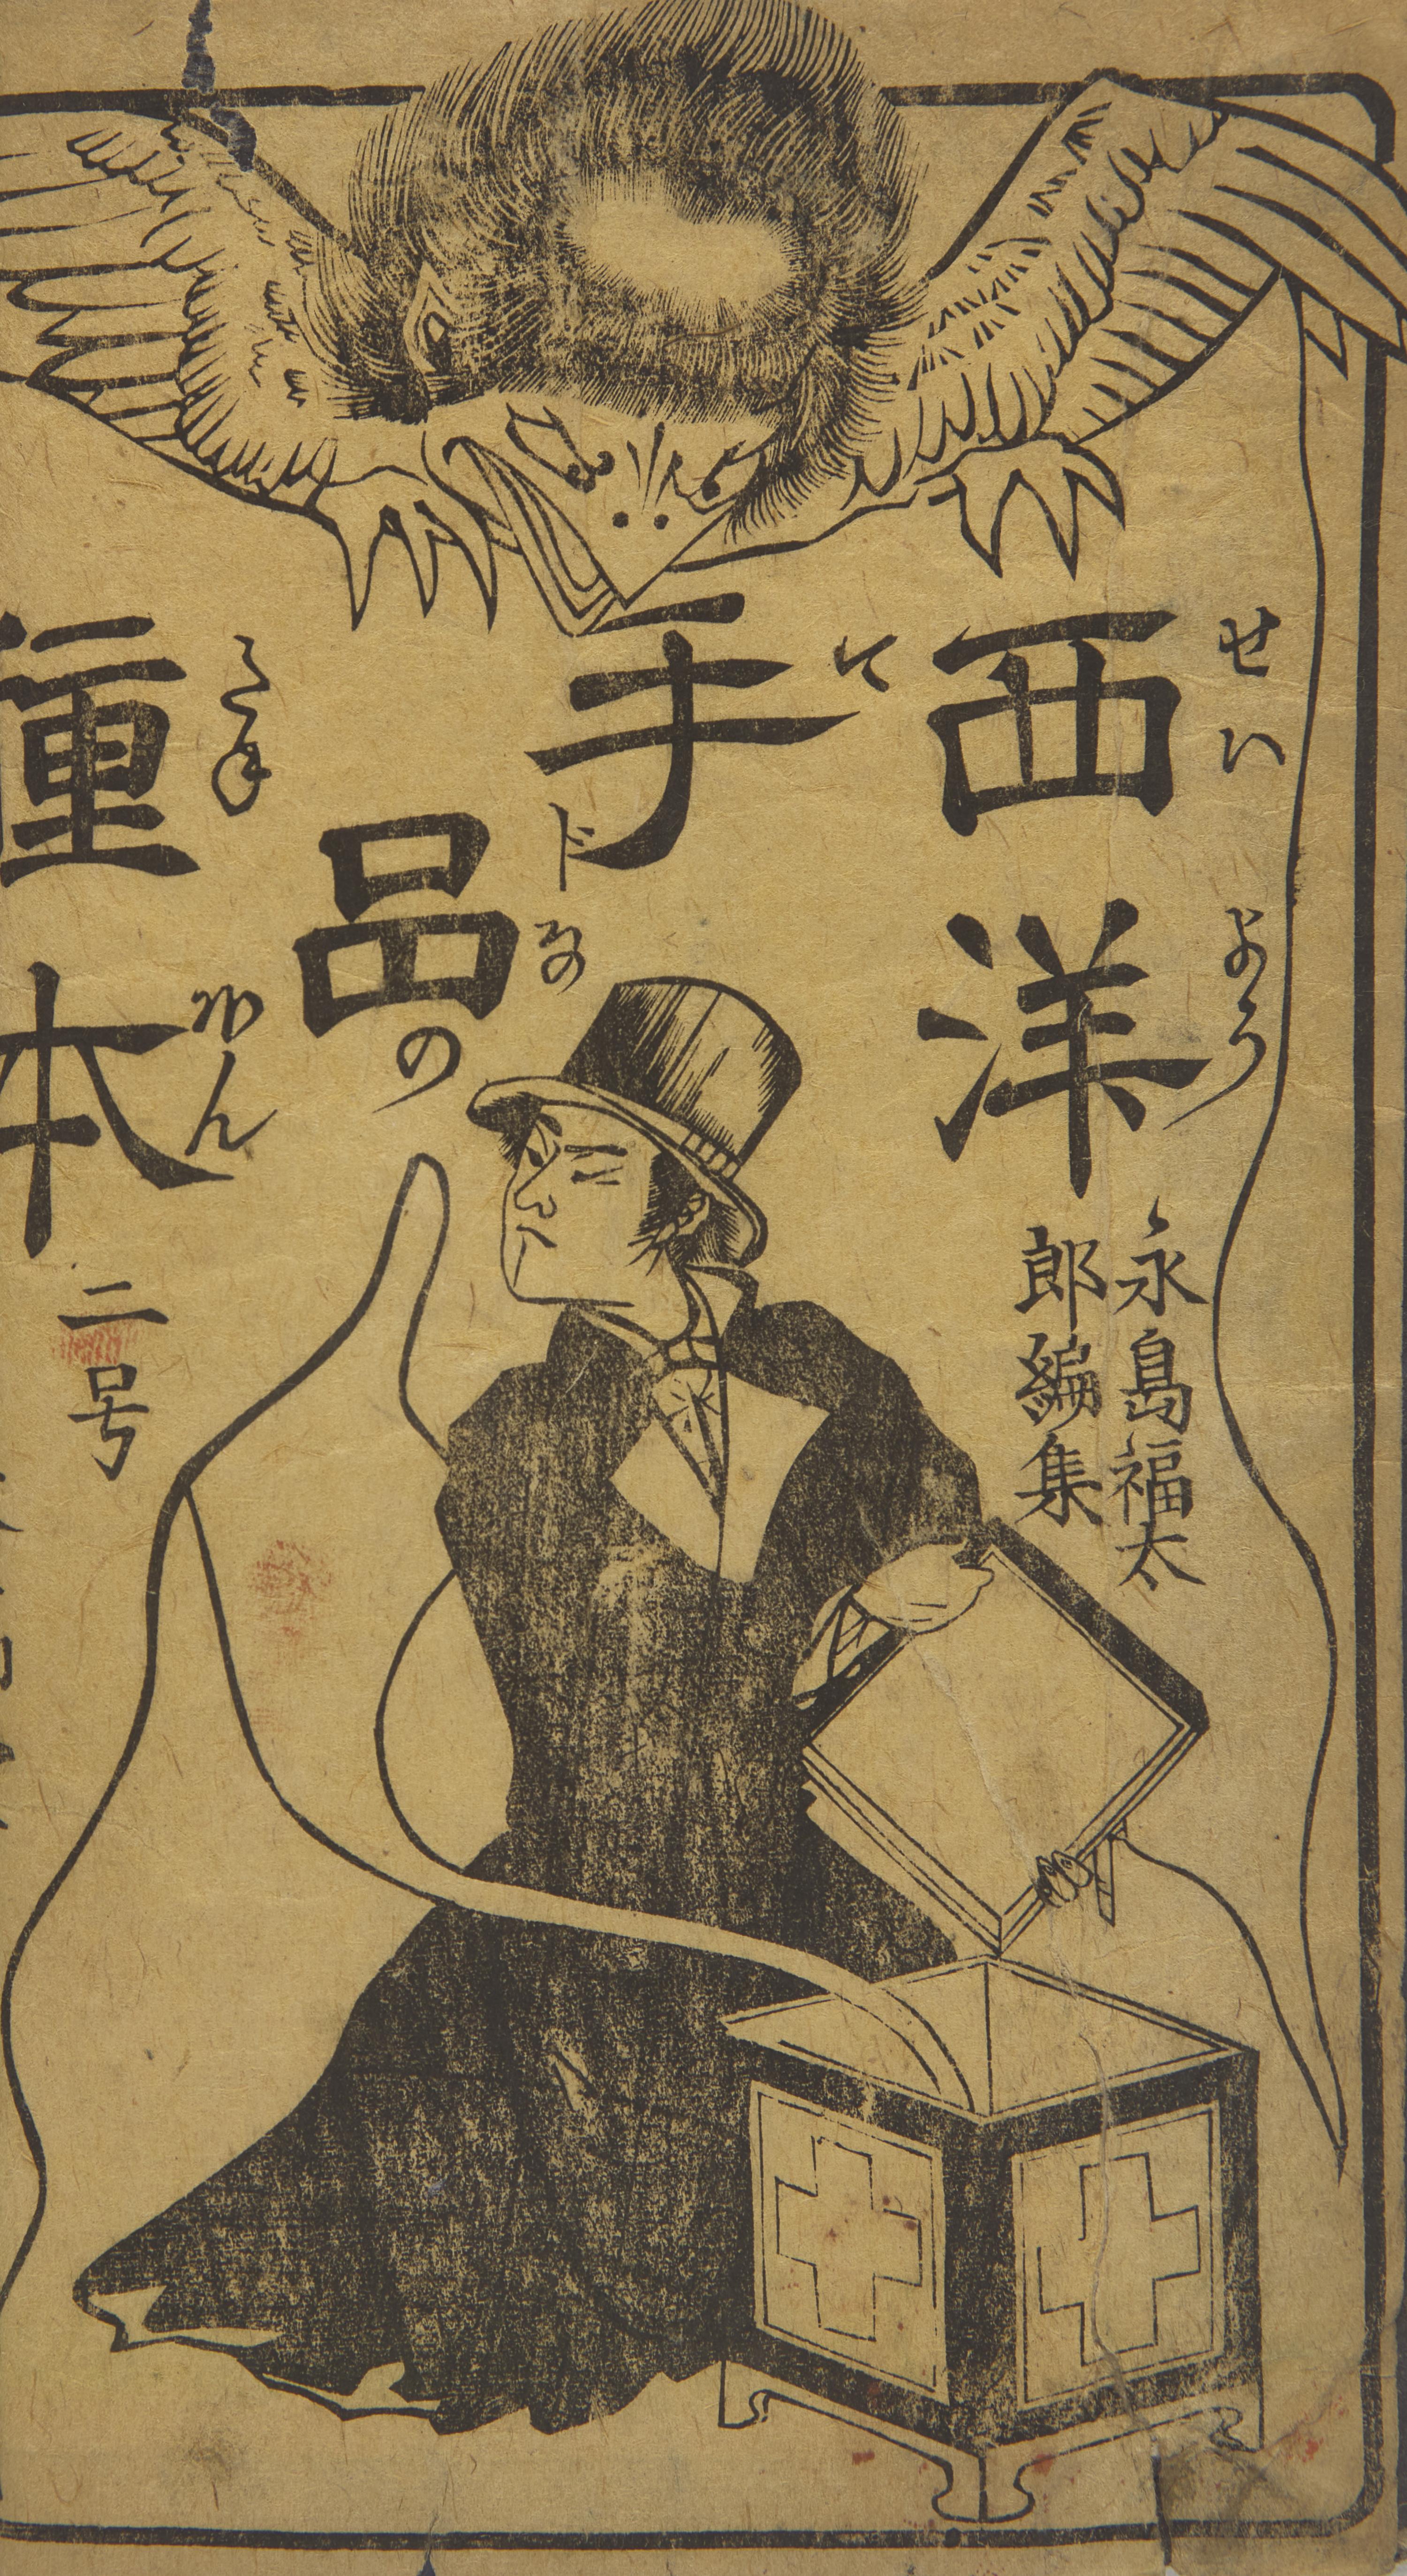 せいよう
西洋
永島福太
郎編集
て
手
じな
品の
たねほん
種本
二号